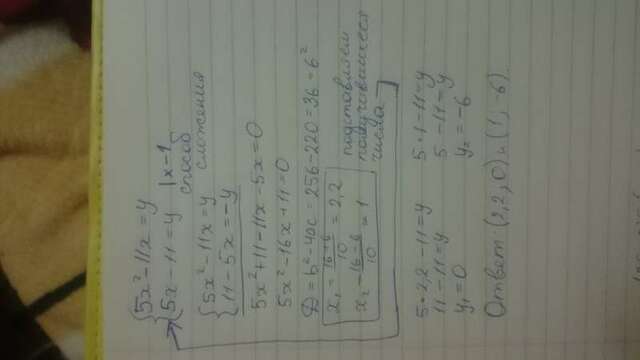 5x²-11x=y
5x-11=y |x-1
способ
сложения
5x²-11x=y
11-5x=-y
5x²+11-11x-5x=0
5x²-16x+11=0
D=b²-4ac=256-220=36=6²
x₁=16+6/10=2,2
x₂=16-6/10=1
подставляем
получившиеся
числа
5·2,2-11=y 5·1-11=y
11-11=y 5-11=y
y₁=0 y₂=-6
Ответ: (2,2;0) и (1;-6)